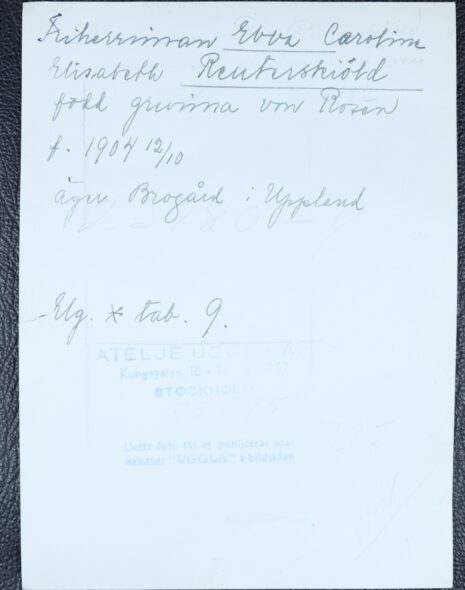 Friherrinnan Ebba Carolina
Elisabeth Reuterskiöld
född grevinna von Rosen
f. 1904 12/10
äger Brogård i Uppland
Elg. * tab. 9.
ATELJÉ UGGLA
Kungsgatan 18
STOCKHOLM
Detta foto får ej publiceras utan
signatur "UGGLA" i bildsidan